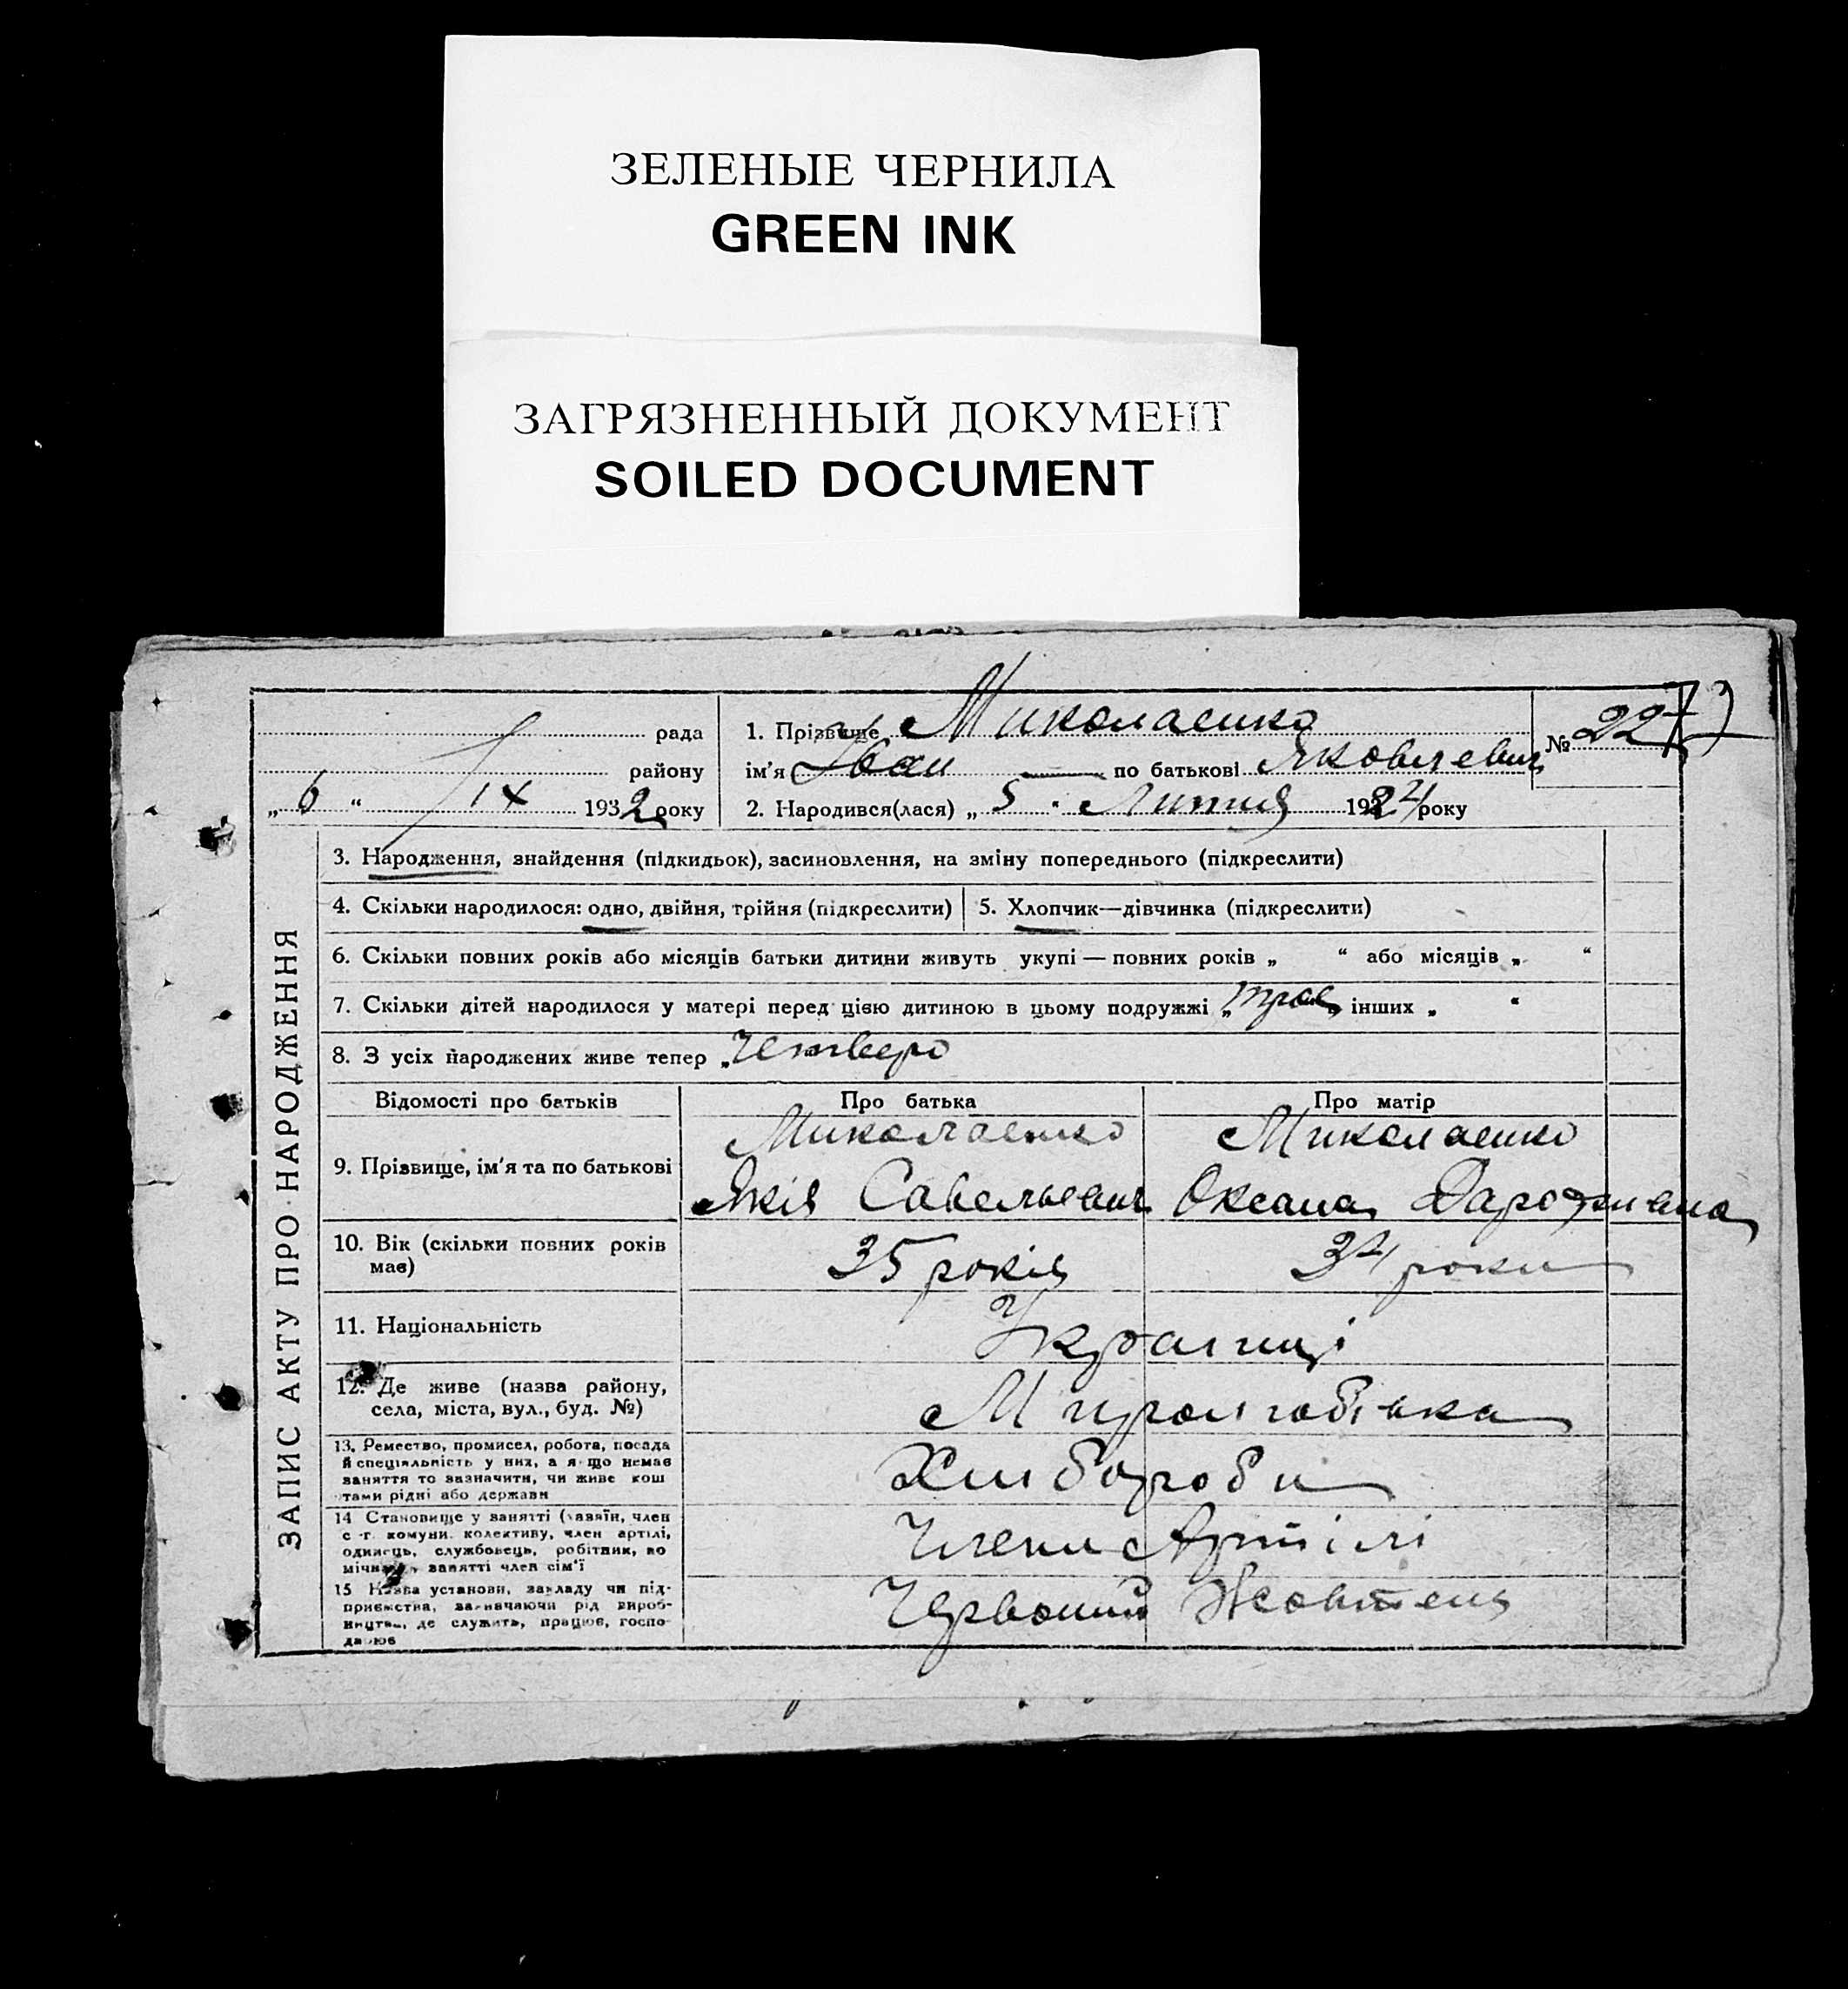 ЗЕЛЕНЫЕ ЧЕРНИЛА
GREEN INK
ЗАГРЯЗНЕННЫЙ ДОКУМЕНТ
SOILED DOCUMENT
ЗАПИС АКТУ ПРО НАРОДЖЕННЯ
рада
району
„ 6 “ IX 1932 року
1. Прізвище Миколаенко
ім'я Іван по батькові Яковлевич
№ 227
2. Народився(лася) „ 5 “ Липня 1924 року
3. Народження, знайдення (підкидьок), засиновлення, на зміну попереднього (підкреслити)
4. Скільки народилося: одно, двійня, трійня (підкреслити)
5. Хлопчик—дівчинка (підкреслити)
6. Скільки повних років або місяців батьки дитини живуть укупі — повних років „ “ або місяців „ “
7. Скільки дітей народилося у матері перед цією дитиною в цьому подружжі „ троє інших „ “
8. З усіх народжених живе тепер „ Четверо
Відомості про батьків
Про батька
Про матір
9. Прізвище, ім'я та по батькові
Миколаенко
Яків Савельевич
Миколаенко
Оксана
10. Вік (скільки повних років має)
35 років
34 роки
11. Національність
Українці
12. Де живе (назва району,
села, міста, вул., буд. №)
13. Ремество, промисел, робота, посада
й спеціяльність у них, а якщо немає
заняття то зазначити, чи живе кош
тами рідні або держави
Хлібороби
14 Становище у занятті (хазяїн, член
с.-г. комуни, колективу, член артілі,
одинець, службовець, робітник, по
мічник у занятті член сім'ї
Члени Артілі
15 Назва установи, закладу чи під-
приємства, зазначаючи рід вироб-
ництва, де служить, працює, госпо-
дарює
Червоний Жовтень